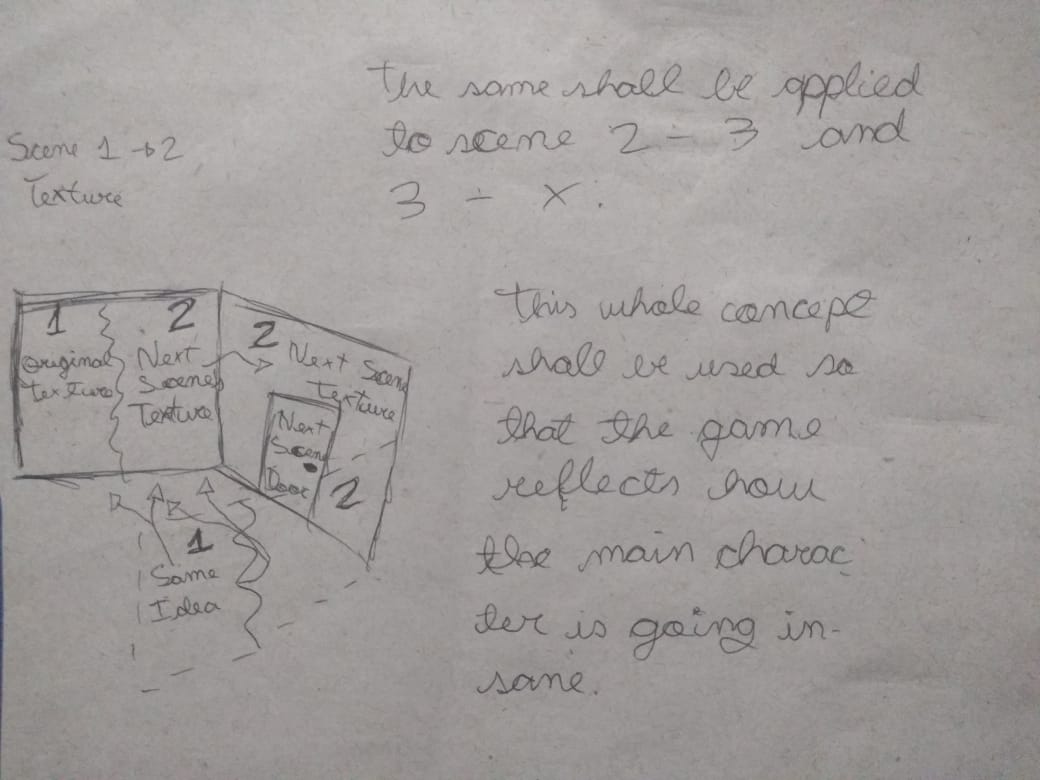 the same shall be applied
to scene 2 - 3 and
3 - x.
Scene 1 → 2
Texture
1
Original
texture
2
Next
Scene
Texture
2
Next Scene
Texture
Next
Scene
Door
2
1
Same
Idea
this whole concept
shall be used so
that the game
reflects how
the main charac
ter is going in-
sane.